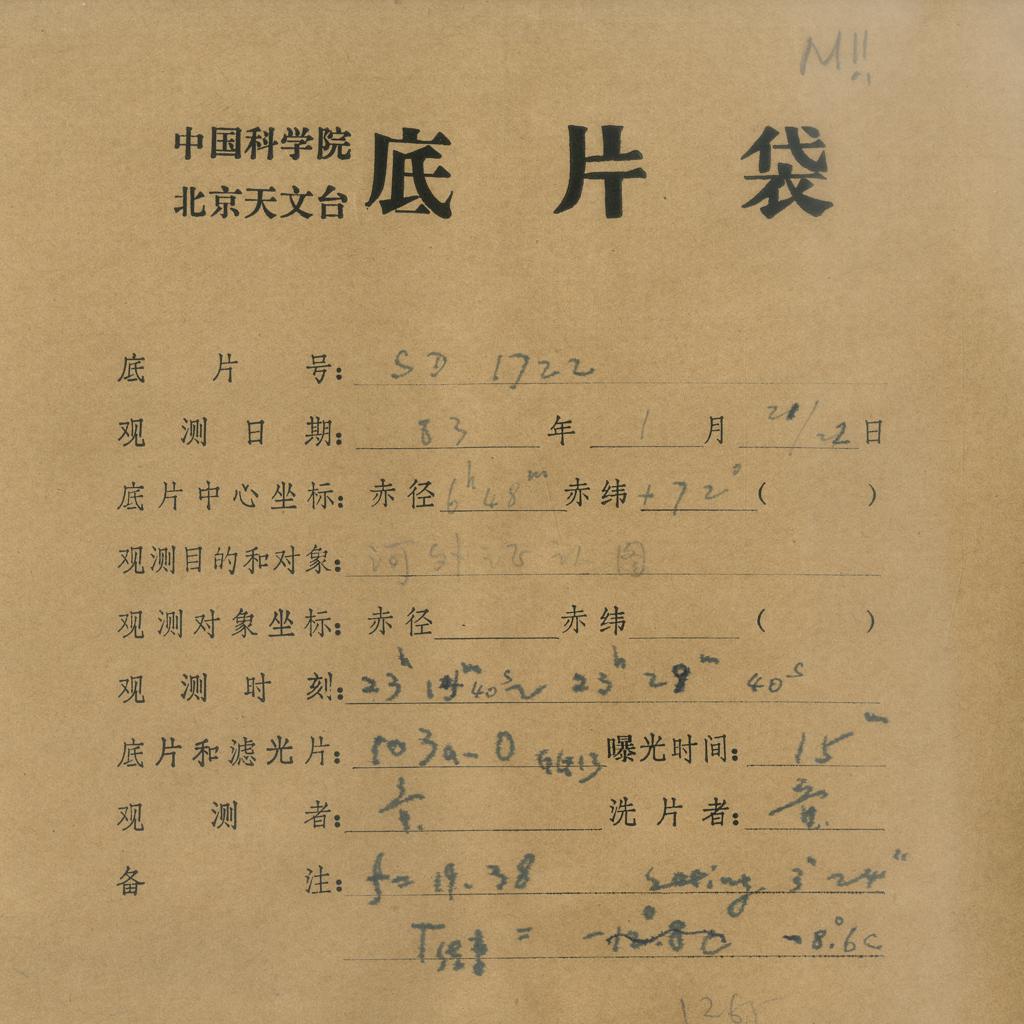 M!!
中国科学院
北京天文台 底片袋
底片号: SD 1722
观测日期: 83 年 1 月 21/22 日
底片中心坐标: 赤径 6h 48m 赤纬 +72° ( )
观测目的和对象: 河外证认图
观测对象坐标: 赤径 赤纬 ( )
观测时刻: 23h 14m 40s ~ 23h 29m 40s
底片和滤光片: 103a-O GG13 曝光时间: 15m
观测者: 童 洗片者: 童
备注: f = 19.38 seeing 3" 24"
T = -8.°6C
1265